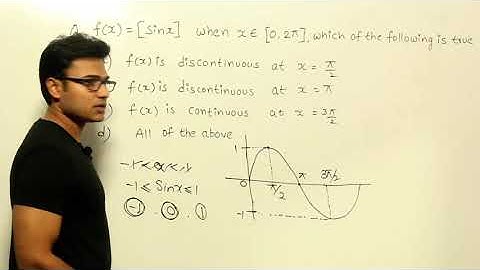 Q. f(x) = [sinx] when x ∈ [0, 2π], which of the following is true
f(x) is discontinuous at x = π/2
f(x) is discontinuous at x = π
f(x) is continuous at x = 3π/2
d) All of the above
-1 ≤ sinx ≤ 1
-1 . 0 . 1
1
0
π/2
π
3π/2
-1